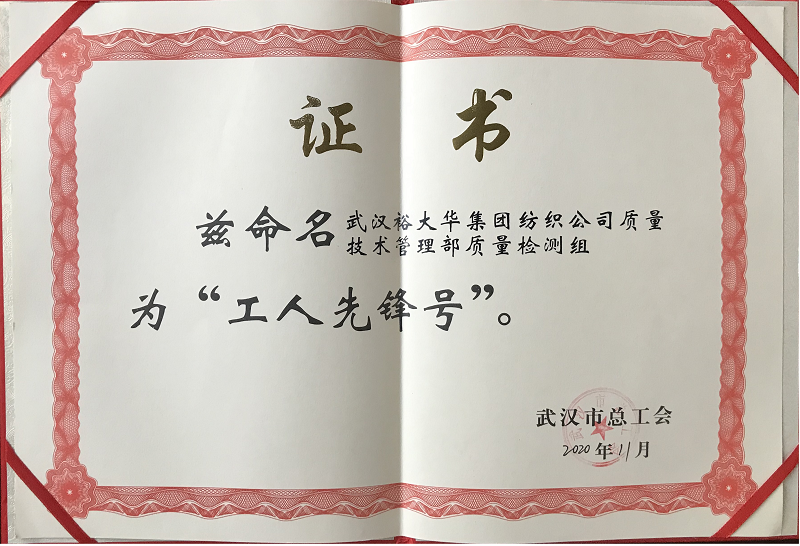 证书
兹命名武汉裕大华集团纺织公司质量
技术管理部质量检测组
为“工人先锋号”。
武汉市总工会
2020年11月